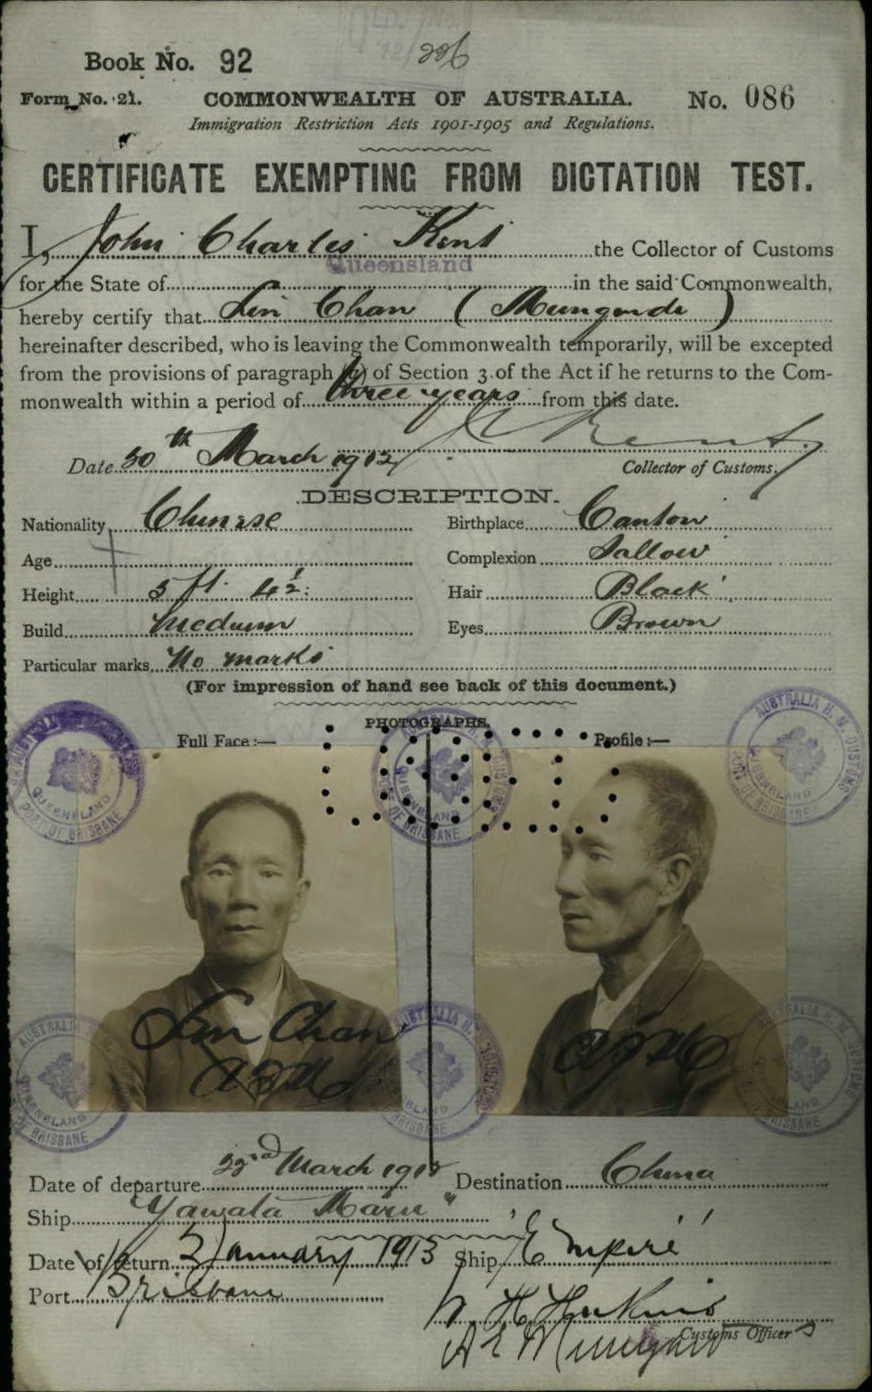 Book No. 92
226
Form No. 21.
COMMONWEALTH OF AUSTRALIA.
No. 086
Immigration Restriction Acts 1901-1905 and Regulations.
CERTIFICATE EXEMPTING FROM DICTATION TEST.
I, John Charles Kent the Collector of Customs
for the State of Queensland in the said Commonwealth,
hereby certify that Sin Chan (Mungindi)
hereinafter described, who is leaving the Commonwealth temporarily, will be excepted
from the provisions of paragraph of Section 3 of the Act if he returns to the Com-
monwealth within a period of three years from this date.
Date 30th March 1912
J C Kent
Collector of Customs.
DESCRIPTION.
Nationality Chinese Birthplace Canton
Age Complexion Sallow
Height 5 ft. 4½ Hair Black
Build Medium Eyes Brown
Particular marks No marks
(For impression of hand see back of this document.)
PHOTOGRAPHS.
Full Face :— Profile :—
AUSTRALIA H. M. CUSTOMS
QUEENSLAND
PORT OF BRISBANE
Sin Chan
Date of departure March 1912 Destination China
Ship Yawata Maru
Date of return 2 January 1913 Ship 'Empire'
Port Brisbane
Customs Officer